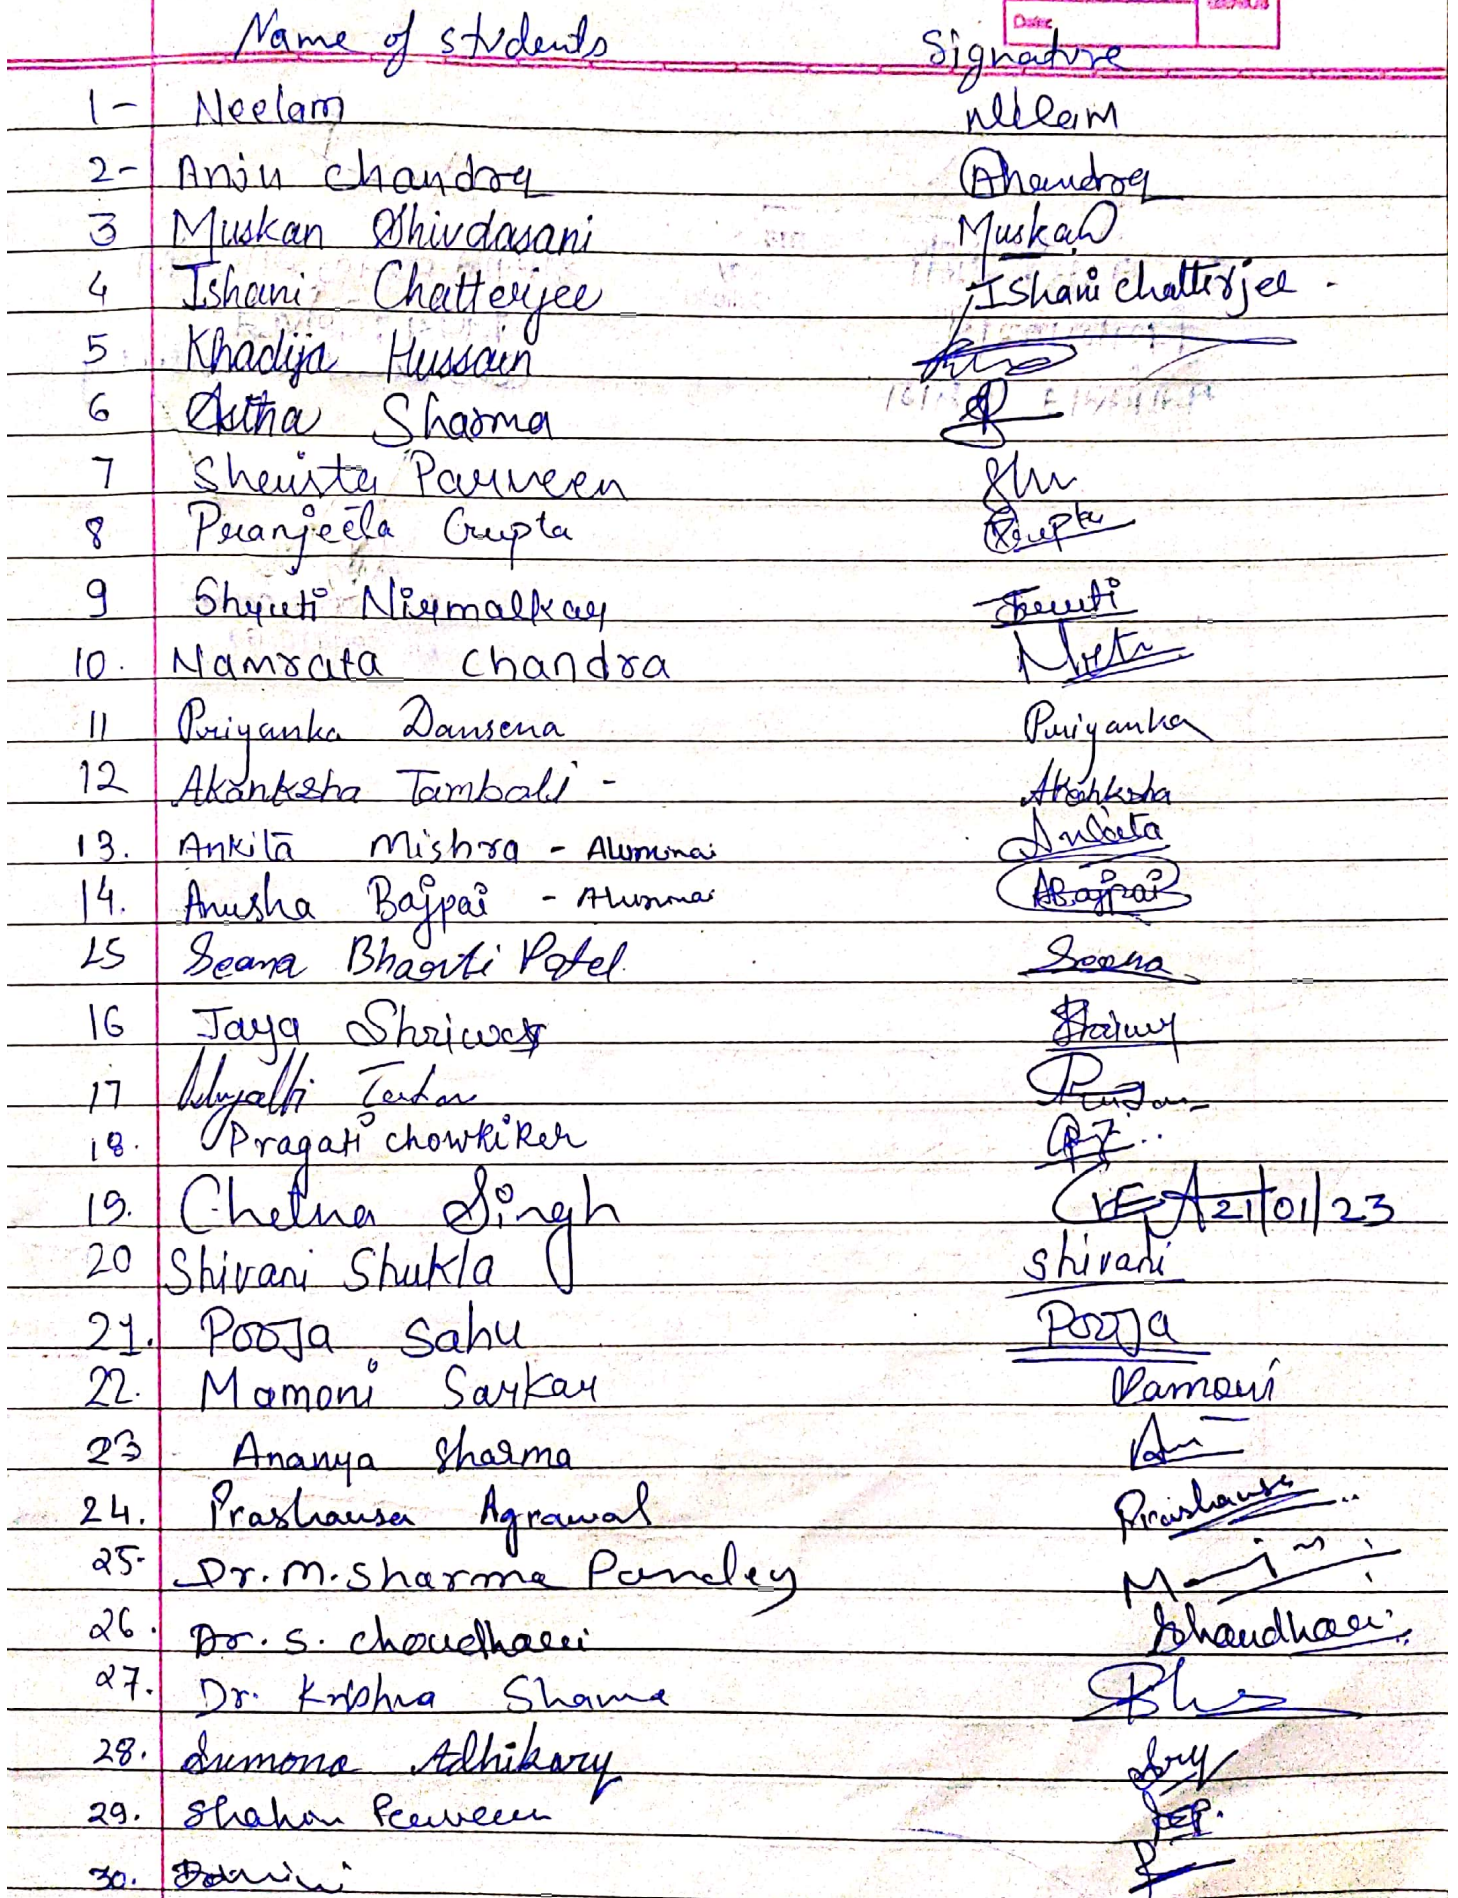 Date:
Name of students Signature
1- Neelam Neelam
2- Anju Chandra AChandra
3 Muskan Shivdasani Muskan
4 Ishani Chatterjee Ishani Chatterjee.
5 Khadija Hussain
6 Astha Sharma
7 Sheista Parveen Shu
8 Pranjeela Gupta Gupta
9 Shruti Nirmalkar Shruti
10. Namrata Chandra
11 Priyanka Dansena Priyanka
12 Akanksha Tamboli - Akanksha
13. Ankita Mishra - Alumunai Ankita
14. Anusha Bajpai - Alumnai ABajpai
15 Seema Bharti Patel Seema
16 Jaya Shriwas
17
18. Pragati Chowkiker
19. Chetna Singh 21/01/23
20 Shivani Shukla Shivani
21. Pooja Sahu Pooja
22. Mamoni Sarkar Mamoni
23 Ananya Sharma
24. Prashansa Agrawal Prashansa
25. Dr. M. Sharma Pandey
26. Dr. S. Choudhari SChaudhari
27. Dr. Krishna Sharma
28. Sumona Adhikary
29. Shahin Perveen
30.